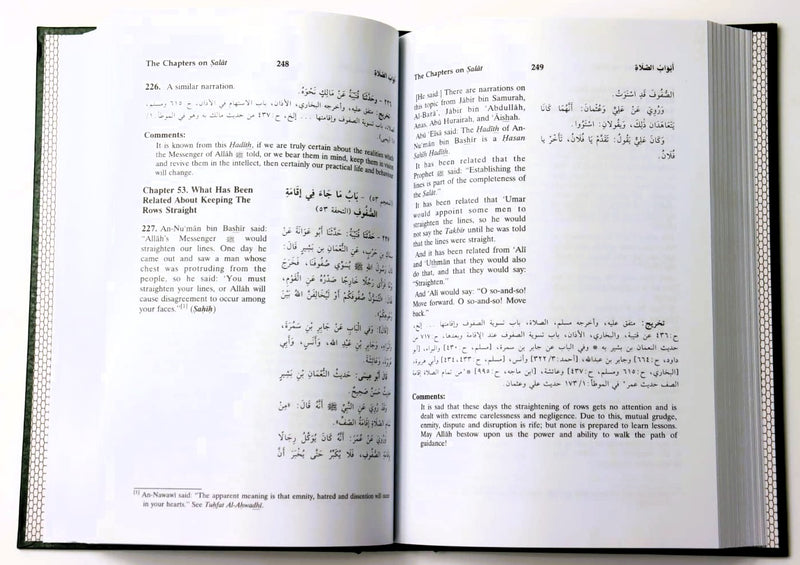 The Chapters on Ṣalāt 248 أبواب الصَّلاة
226. A similar narration.
٢٢٦ - وَحَدَّثَنَا قُتَيْبَةُ عَنْ مَالِكٍ نَحْوَهُ.
تخريج: متفق عليه، وأخرجه البخاري، الأذان، باب الاستهام في الأذان، ح: ٦١٥ ومسلم،
باب تسوية الصفوف وإقامتها ... إلخ، ح: ٤٣٧ من حديث مالك به وهو في الموطأ: ١
Comments:
It is known from this Hadith, if we are truly certain about the realities which
the Messenger of Allāh ﷺ told, or we bear them in mind, keep them in vision
and revive them in the intellect, then certainly our practical life and behaviour
will change.
Chapter 53. What Has Been
Related About Keeping The
Rows Straight
(المعجم ٥٣) - بَابُ مَا جَاءَ فِي إِقَامَةِ
الصُّفُوفِ (التحفة ٥٣)
227. An-Nu'mān bin Bashīr said:
"Allāh's Messenger ﷺ would
straighten our lines. One day he
came out and saw a man whose
chest was protruding from the
people, so he said: 'You must
straighten your lines, or Allāh will
cause disagreement to occur among
your faces.'"[1] (Ṣaḥīḥ)
٢٢٧ - حَدَّثَنَا قُتَيْبَةُ: حَدَّثَنَا أَبُو عَوَانَةَ عَنْ
بْنِ حَرْبٍ، عَنِ النُّعْمَانِ بْنِ بَشِيرٍ قَالَ:
رَسُولُ اللهِ ﷺ يُسَوِّي صُفُوفَنَا، فَخَرَجَ
رَجُلًا خَارِجًا صَدْرُهُ عَنِ الْقَوْمِ،
لَتُسَوُّنَّ صُفُوفَكُمْ أَوْ لَيُخَالِفَنَّ اللهُ بَيْنَ
وُجُوهِكُمْ.
[قَالَ]: وَفِي الْبَابِ عَنْ جَابِرِ بْنِ سَمُرَةَ،
وَجَابِرِ بْنِ عَبْدِ اللهِ، وَأَنَسٍ، وَأَبِي
وَعَائِشَةَ.
قَالَ أَبُو عِيسَى: حَدِيثُ النُّعْمَانِ بْنِ بَشِيرٍ
حَدِيثٌ حَسَنٌ صَحِيحٌ.
وَقَدْ رُوِيَ عَنِ النَّبِيِّ ﷺ أَنَّهُ قَالَ: «مِنْ
تَمَامِ الصَّلَاةِ إِقَامَةُ الصَّفِّ».
وَرُوِيَ عَنْ عُمَرَ: أَنَّهُ كَانَ يُوَكِّلُ رِجَالًا
بِإِقَامَةِ الصُّفُوفِ، فَلَا يُكَبِّرُ حَتَّى يُخْبَرَ أَنَّ
[1] An-Nawawī said: "The apparent meaning is that emnity, hatred and dissention will occur
in your hearts." See Tuḥfat Al-Aḥwadhī.
The Chapters on Ṣalāt 249 أبْوَابُ الصَّلَاةِ
[He said] There are narrations on
this topic from Jābir bin Samurah,
Al-Barā', Jābir bin 'Abdullāh,
Anas, Abū Hurairah, and 'Āishah.
Abū 'Eīsā said: The Ḥadīth of An-
Nu'mān bin Bashīr is a Ḥasan
Ṣaḥīḥ Ḥadīth.
It has been related that the
Prophet ﷺ said: "Establishing the
lines is part of the completeness of
the Ṣalāt."
It has been related that 'Umar
would appoint some men to
straighten the lines, so he would
not say the Takbīr until he was told
that the lines were straight.
And it has been related from 'Alī
and 'Uthmān that they would also
do that, and that they would say:
"Straighten."
And 'Alī would say: "O so-and-so!
Move forward. O so-and-so! Move
back."
الصُّفُوفَ قَدِ اسْتَوَتْ.
وَرُوِيَ عَنْ عَلِيٍّ وَعُثْمَانَ: أَنَّهُمَا كَانَا
يَتَعَاهَدَانِ ذَلِكَ، وَيَقُولَانِ: اسْتَوُوا.
وَكَانَ عَلِيٌّ يَقُولُ: تَقَدَّمْ يَا فُلَانُ، تَأَخَّرْ يَا
فُلَانُ.
تخريج: متفق عليه، وأخرجه مسلم، الصلاة، باب تسوية الصفوف وإقامتها ... إلخ،
ح: ٤٣٦ عن قتيبة، والبخاري، الأذان، باب تسوية الصفوف عند الإقامة وبعدها، ح: ٧١٧ من
حديث النعمان بن بشير به * وفي الباب عن جابر بن سمرة، [مسلم، ح: ٤٣٠] والبراء، [أبو
داود، ح: ٦٦٤] وجابر بن عبدالله، [أحمد: ٣/ ٣٢٢] وأنس، [مسلم، ح: ٤٣٣، ٤٣٤] وأبي هريرة
[البخاري، ح: ٦١٥ ومسلم، ح: ٤٣٧] وعائشة، [ابن ماجه، ح: ٩٩٥] * "من تمام الصلاة إقامة
الصف حديث عمر" في الموطأ: ١/ ١٧٣ حديث علي وعثمان.
Comments:
It is sad that these days the straightening of rows gets no attention and is
dealt with extreme carelessness and negligence. Due to this, mutual grudge,
enmity, dispute and disruption is rife; but none is prepared to learn lessons.
May Allāh bestow upon us the power and ability to walk the path of
guidance!